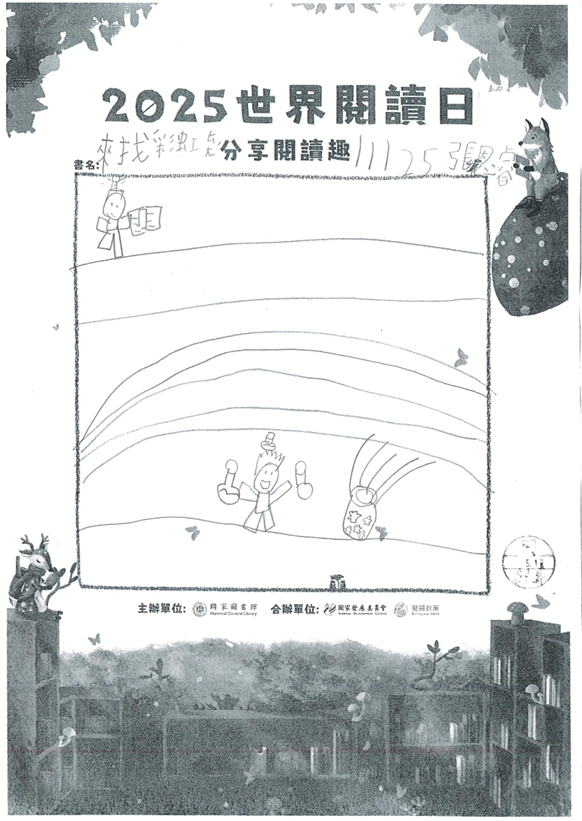 2025世界閱讀日
來找彩虹 分享閱讀趣 111 25 張恩
書名:
主辦單位: 國家圖書館 National Central Library 合辦單位: 國家發展委員會 雙語政策